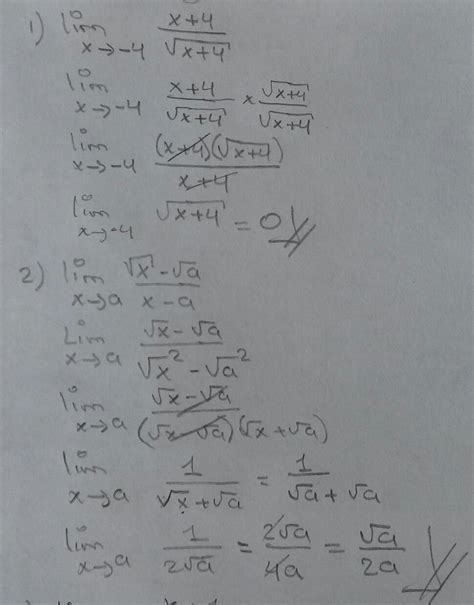 1) lim x→-4 (x+4)/√(x+4)
lim x→-4 (x+4)/√(x+4) × √(x+4)/√(x+4)
lim x→-4 (x+4)(√(x+4))/(x+4)
lim x→-4 √(x+4) = 0
2) lim x→a (√x - √a)/(x - a)
Lim x→a (√x - √a)/(√x² - √a²)
lim x→a (√x - √a)/((√x - √a)(√x + √a))
lim x→a 1/(√x + √a) = 1/(√a + √a)
lim x→a 1/(2√a) = 2√a/(4a) = √a/(2a)